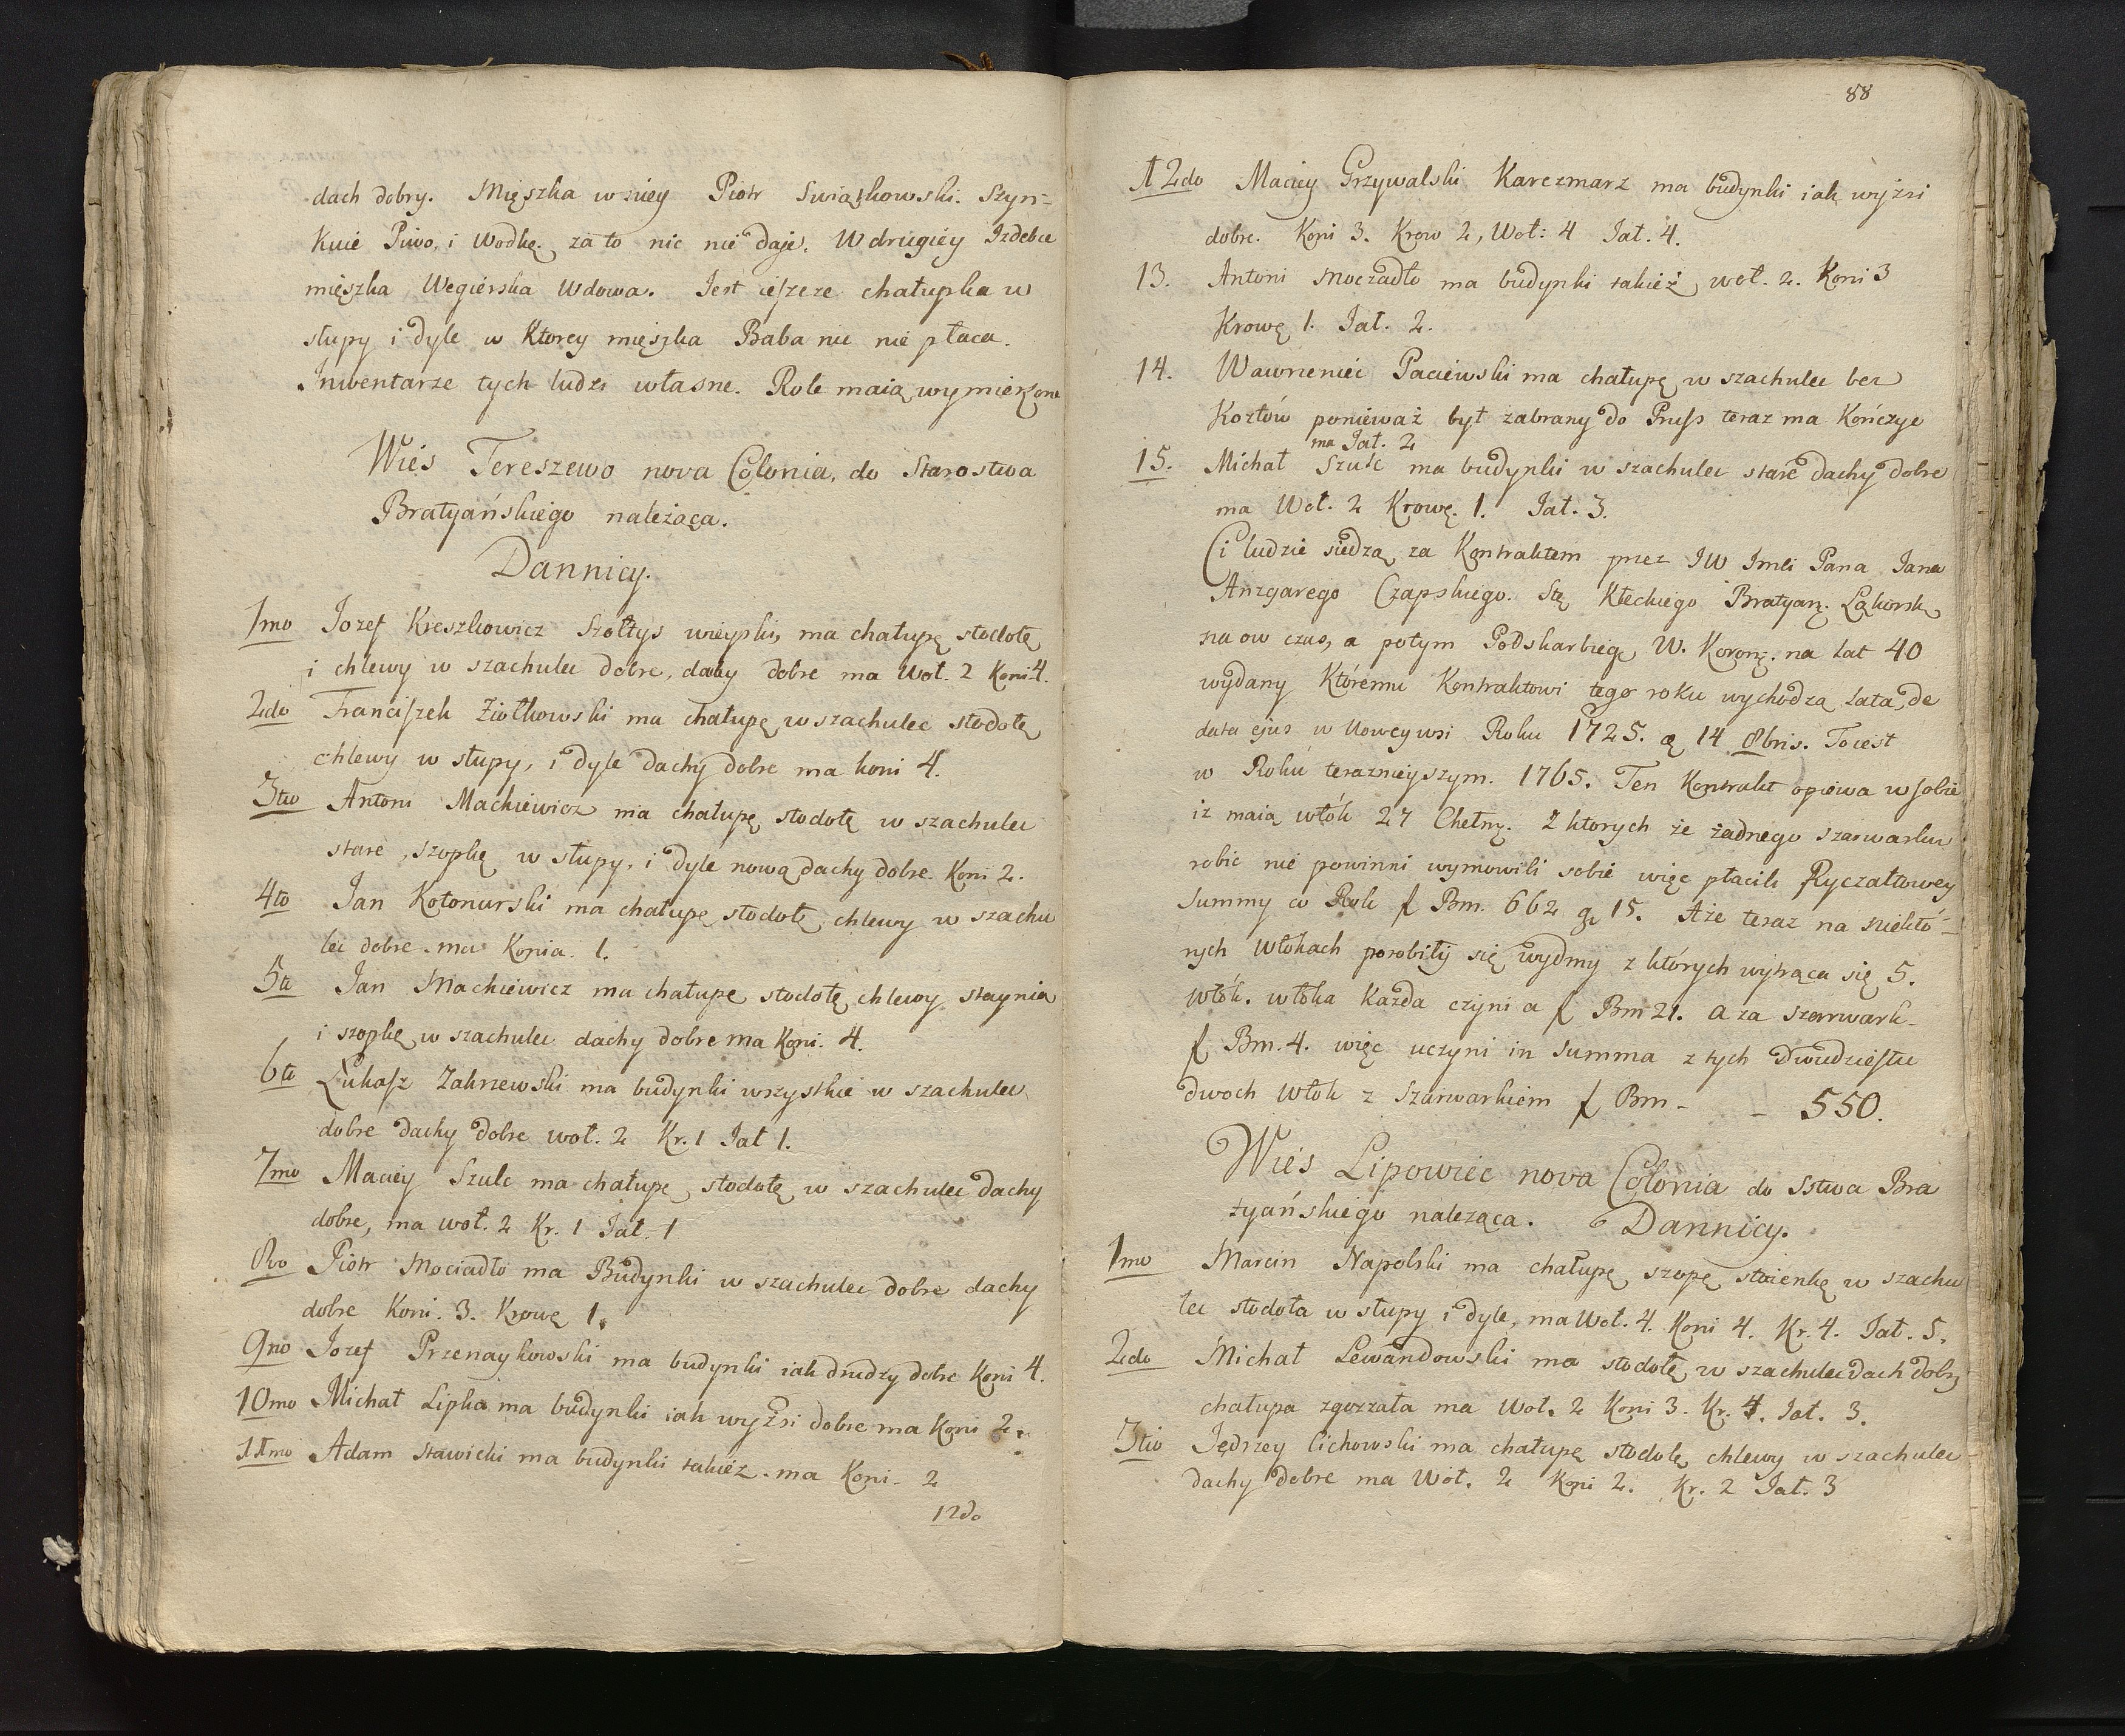 dach dobry. Mięszka w niey Piotr Swiątkowski. Szyn-
kuie Piwo, i Wodkę. za to nic nie daje. W drugiéy Izdebce
mięszka Wegierska Wdowa. Jest ieszcze chałupka w
słupy i dyle w Ktorey mięszka Baba nic nie płaca.
Inwentarze tych ludzi własne. Role maią wymierzone
Wieś Tereszewo nova Colonia, do Starostwa
Bratyańskiego należąca.
Dannicy.
1mo Jozef Kreszkowicz Szołtys wieyski, ma chałupę stodołę
i chlewy w szachulec dobre, dachy dobre ma Woł. 2 Koni 4.
2do Franciszek Ziołkowski ma chałupę w szachulec stodołę
chlewy w słupy, i dyle dachy dobre ma koni 4.
3tio Antoni Mackiewicz ma chałupę stodołę w szachulec
stare, szopkę w słupy, i dyle nową dachy dobre. Koni 2.
4to Jan Kotonurski ma chałupę, stodołę, chlewy w szachu
lec dobre. ma Konia. 1.
5ta Jan Mackiewicz ma chałupę stodołę, chlewy staynia
i szopkę w szachulec dachy dobre ma Koni. 4.
6to Łukasz Zakrzewski ma budynki wszystkie w szachulec
dobre dachy dobre woł. 2 Kr. 1 Jał 1.
7mo Maciéy Szulc ma chałupę, stodołę w szachulec dachy
dobre, ma woł. 2 Kr. 1 Jał. 1
8vo Piotr Mociadło ma Budynki w szachulec dobre dachy
dobre Koni. 3. Krowę 1.
9no Jozef Przenaykowski ma budynki iak drudzy dobre Koni 4.
10mo Michał Lipka ma budynki iak wyżsi dobre ma Koni 2.
11mo Adam Stawicki ma budynki takież. ma Koni. 2
12do
88
12do Maciéy Grzywalski Karczmarz ma budynki iak wyżsi
dobre. Koni 3. Krow 2, Woł: 4 Jał. 4.
13. Antoni Moczadło ma budynki takież, woł. 2. Koni 3
Krowę 1. Jał. 2.
14. Wawrzeniec Paciewski ma chałupę w szachulec bez
Kozłów ponieważ był zabrany do Pruss teraz ma Kończyc
ma Jał. 2
15. Michał Szulc ma budynki w szachulec stare dachy dobre
ma Woł. 2 Krowę. 1. Jał. 3.
Ci ludzie siedzą za Kontraktem przez JW Jmći Pana Jana
Anzgarego Czapskiego. Stę Kłeckiego Bratyan. Ląkorsk
na ow czas, a potym Podskarbiego W. Koron. na lat 40
wydany Któremu Kontraktowi tego roku wychodzą lata, de
data ejus w Noweywsi Roku 1725. a 14 8bris. To iest
w Roku teraznieyszym. 1765. Ten Kontrakt opiewa w sobie
iz maią włók 27 Chełm. Z ktorych że żadnego szarwarku
robic nie powinni wymowili sobie więc płacili Ryczałtowey
Summy co Rok f Bm. 662 g 15. A że teraz na niektó-
rych Włokach porobiły się wydmy z których wytrąca się 5.
włók. włoka Każda czyni a f Bm 21. a za szarwark-
f Bm. 4. więc uczyni in Summa z tych Dwudziestu
dwoch Włok z Szarwarkiem f Bm - - 550.
Wieś Lipowiec nova Colonia do Sstwa Bra
tyańskiego należąca. Dannicy.
1mo Marcin Napolski ma chałupę, szopę staienkę w szachu
lec stodoła w słupy i dyle, ma Woł. 4. Koni 4. Kr. 4. Jał. 5.
2do Michał Lewandowski ma stodołę w szachulec dach dobry
chałupa zgorzała ma Woł. 2 Koni 3. Kr. 4. Jał. 3.
3tio Jędrzey Cichowski ma chałupę stodołę chlewy w szachulec
dachy dobre ma Woł. 2 Koni 2. Kr. 2 Jał. 3